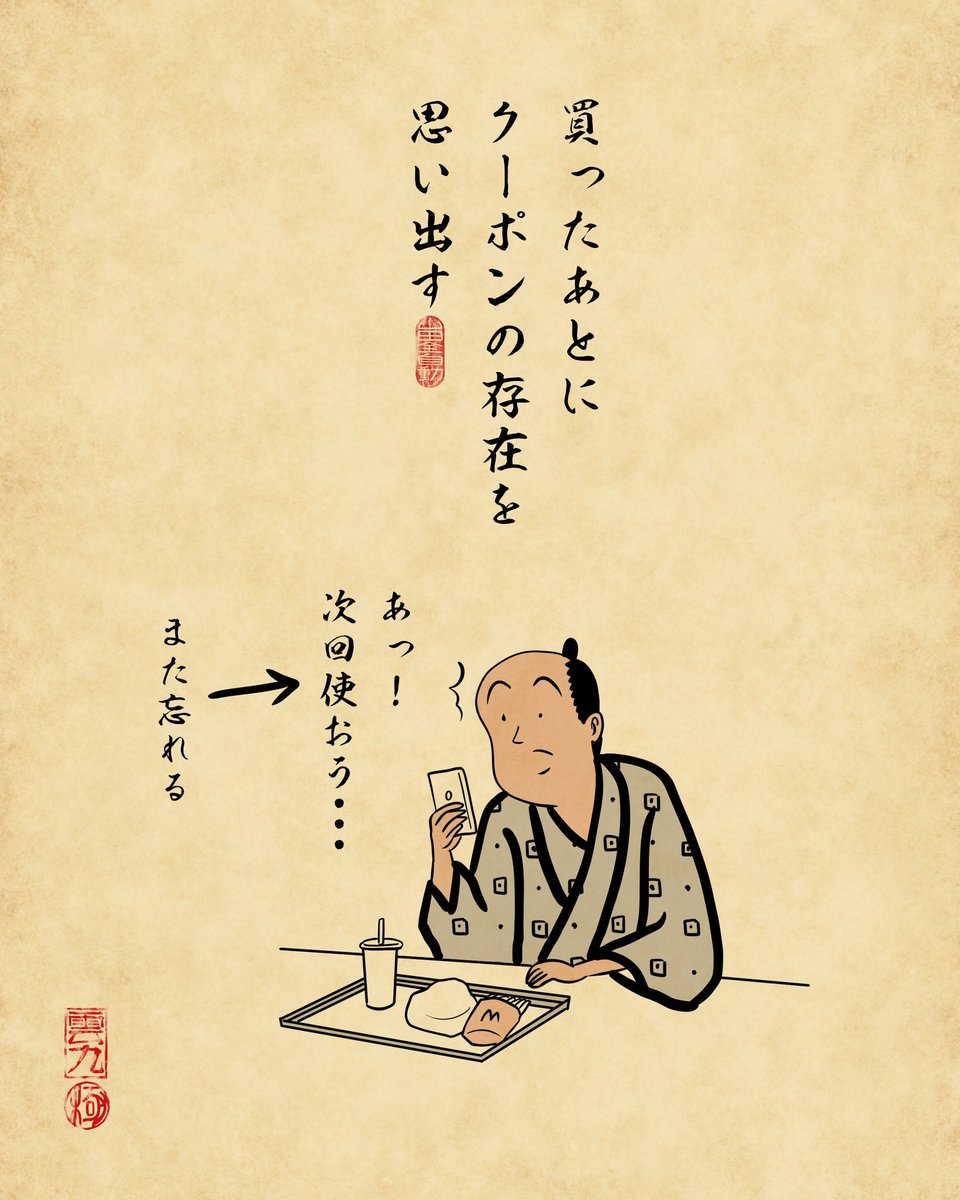 買ったあとに
クーポンの存在を
思い出す
あっ!
次回使おう・・・
また忘れる
M